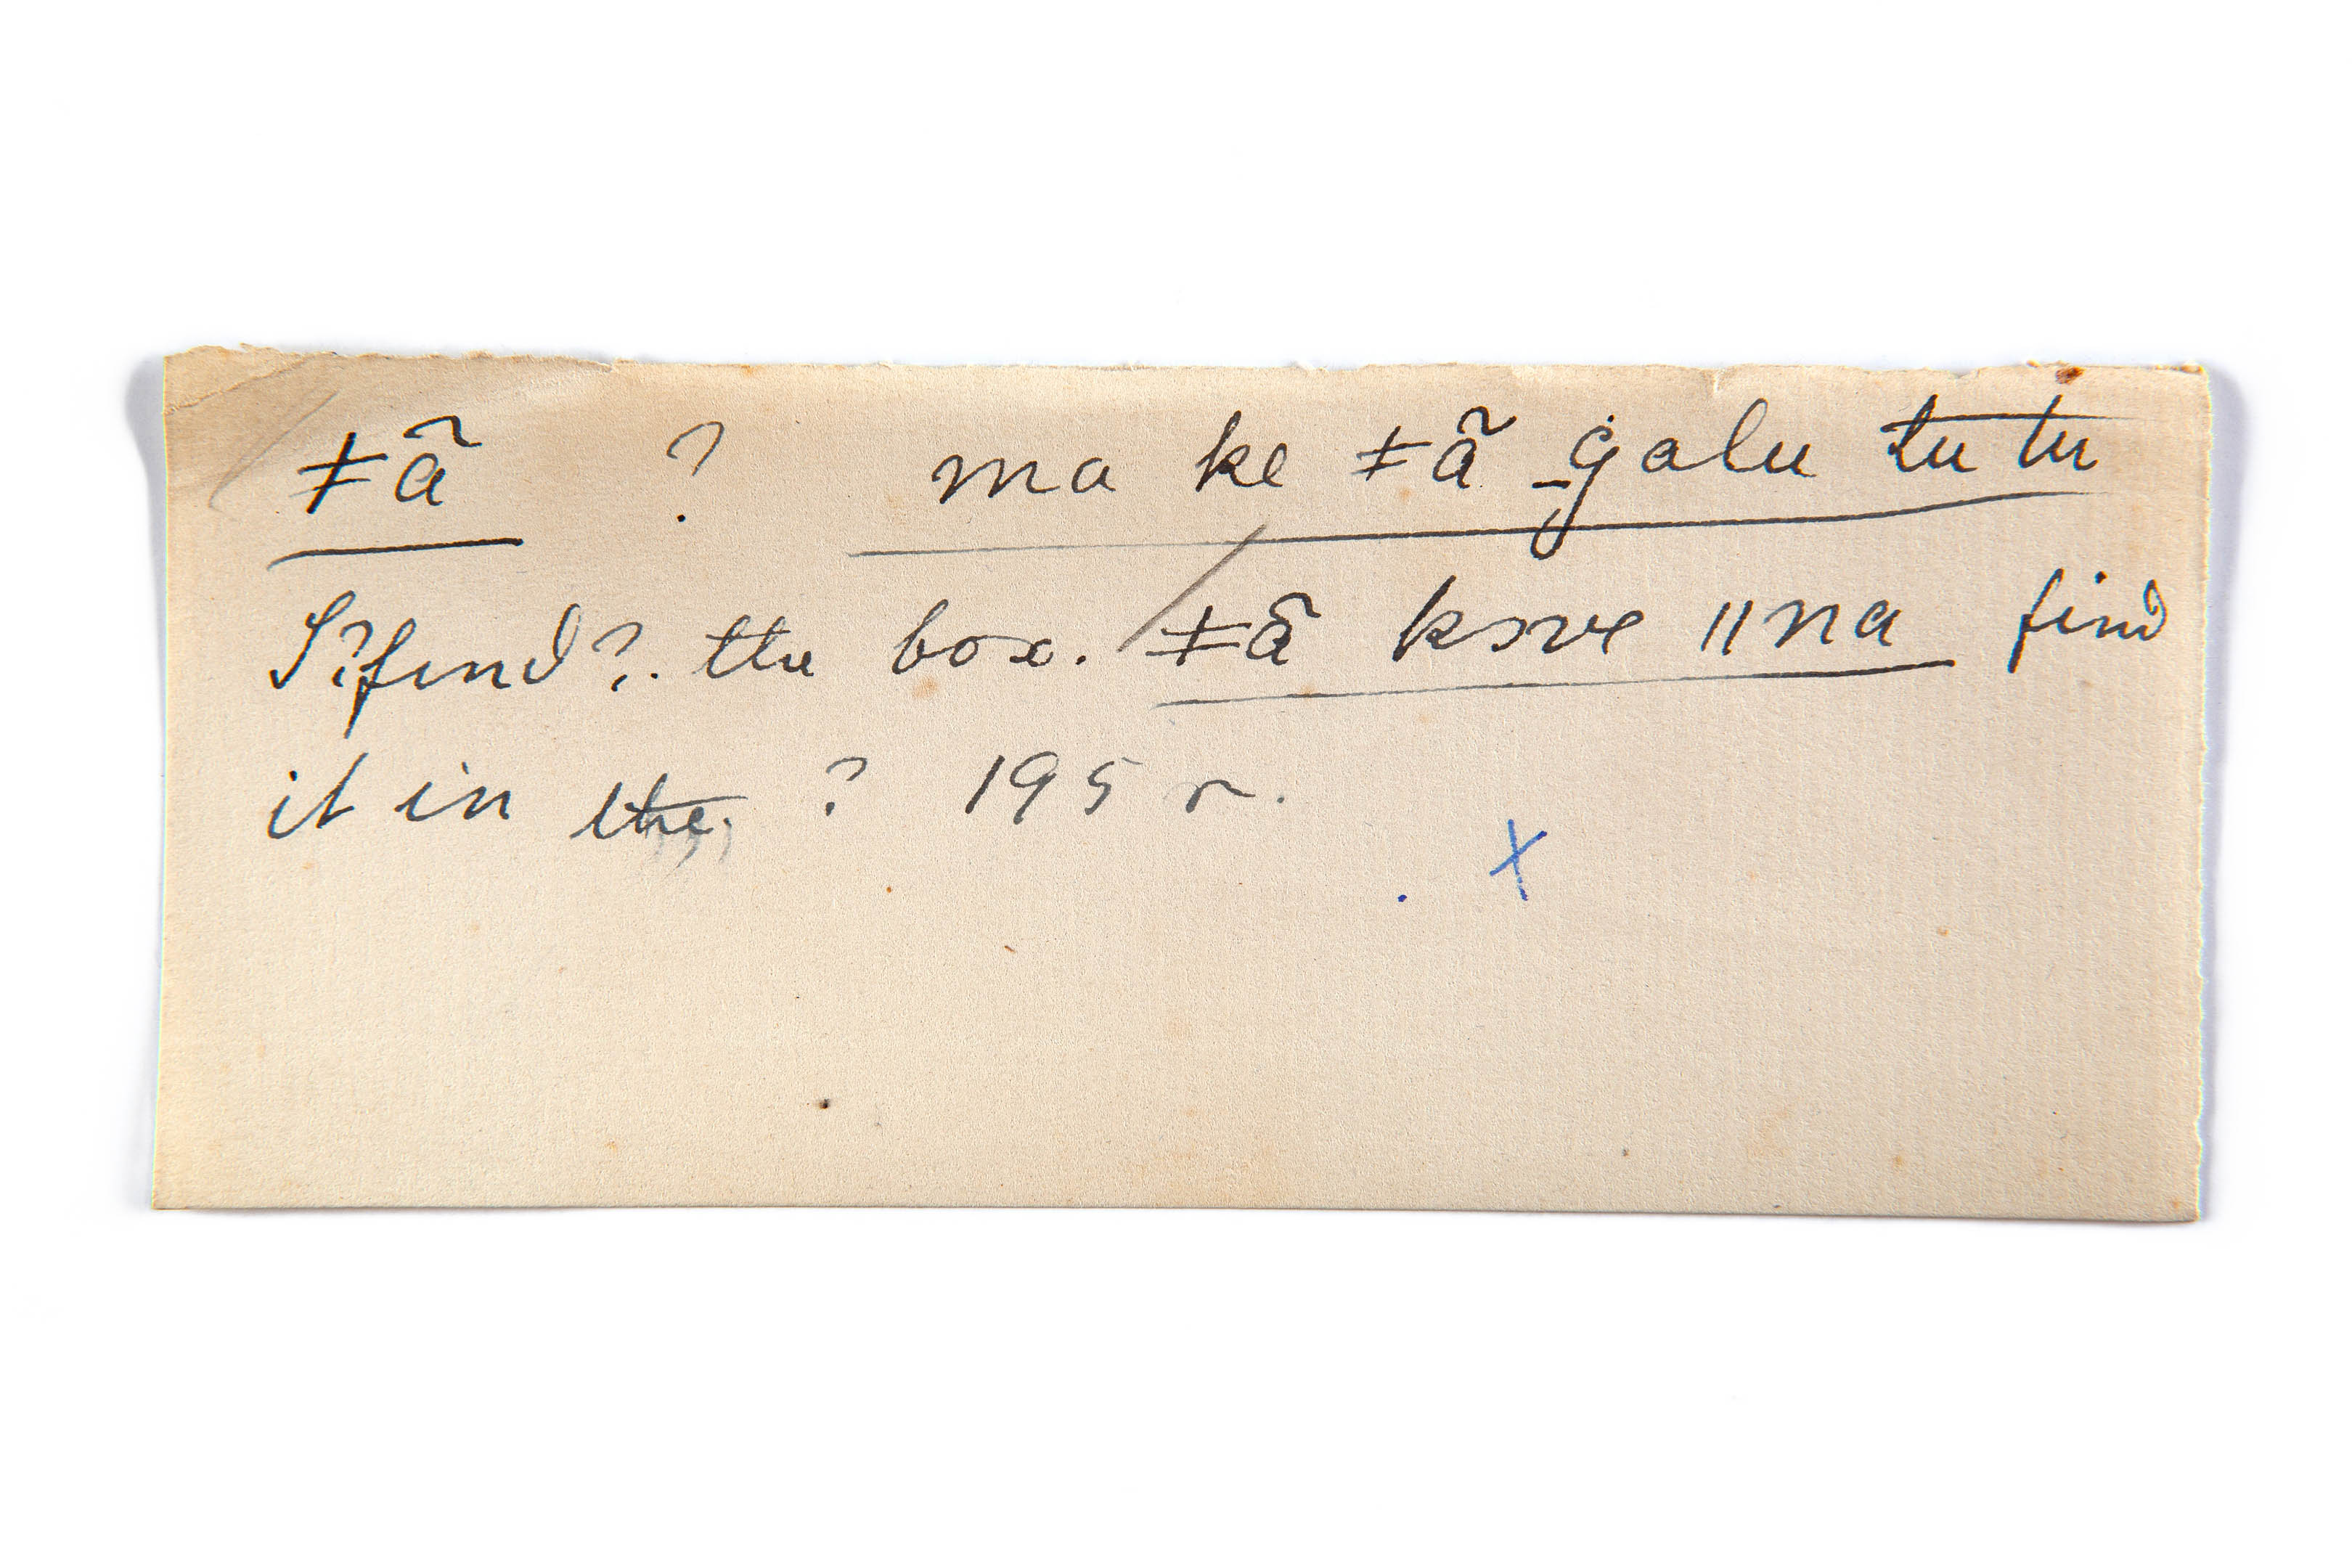 ǂã ? ma ke ǂã _ġalu tu tu
I?find?. the box. ǂã kɔve ǁna find
it in the ? 195 r.
X